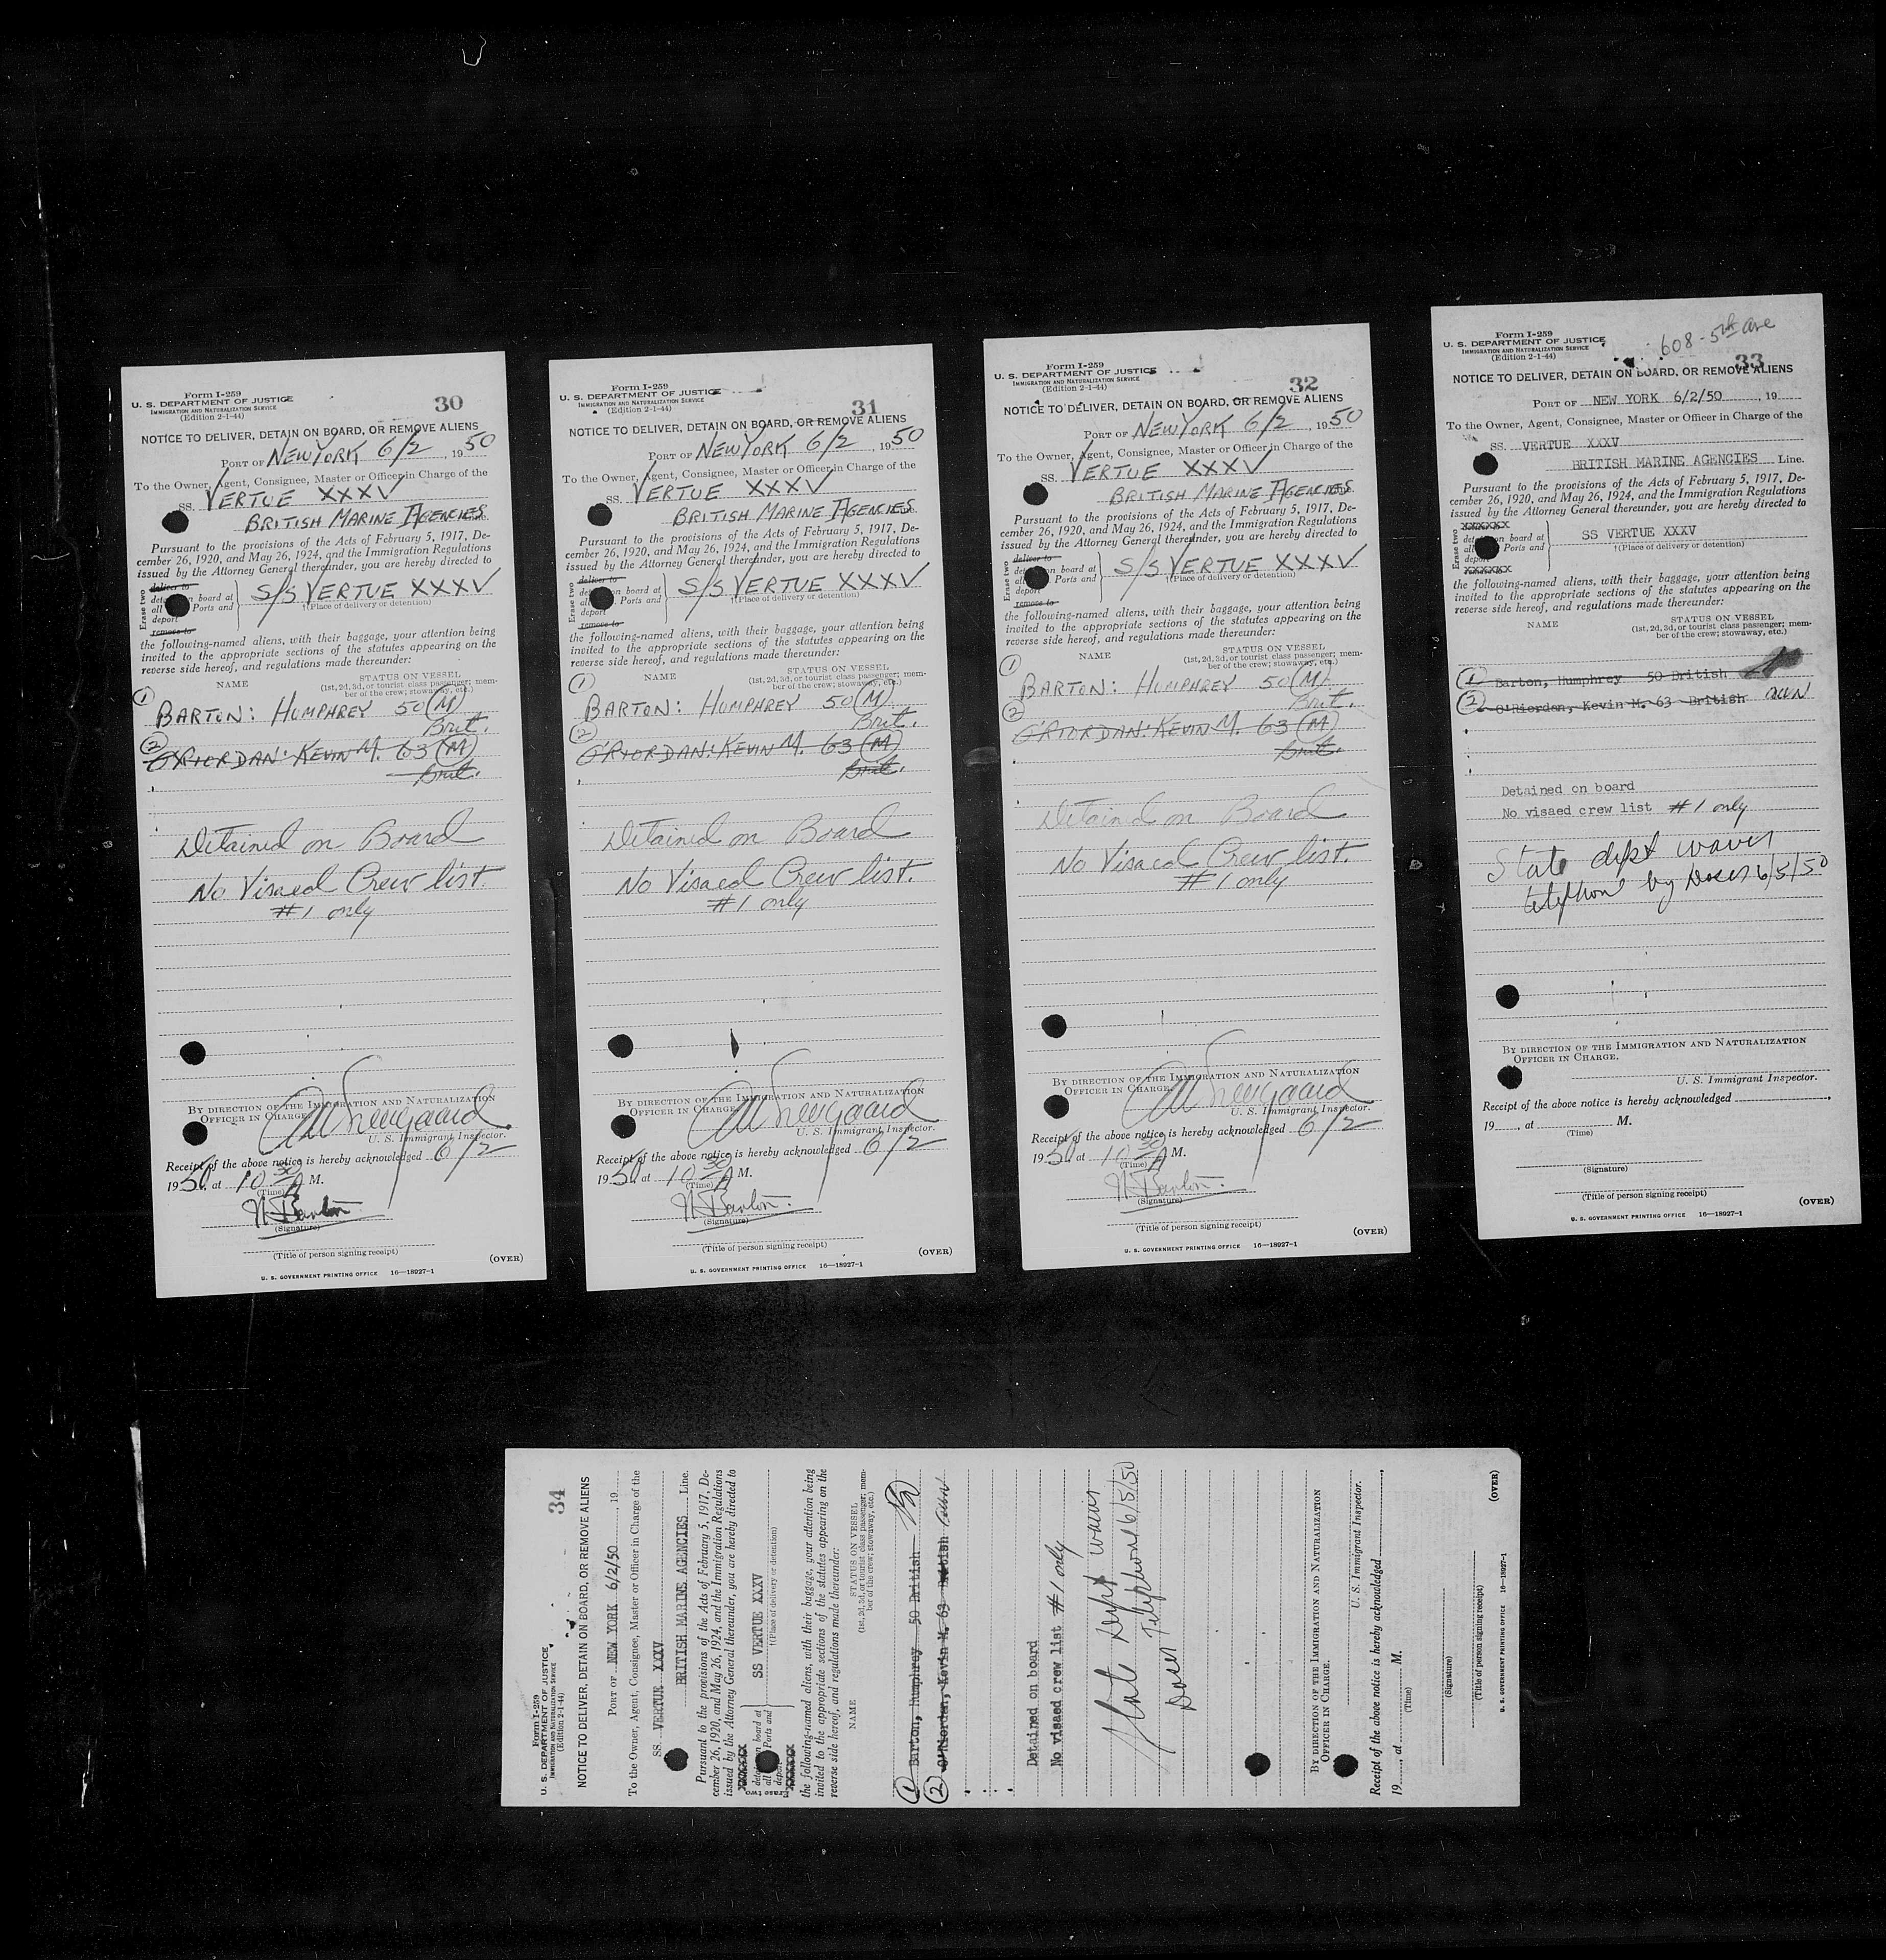 Form I-259
U. S. DEPARTMENT OF JUSTICE
IMMIGRATION AND NATURALIZATION SERVICE
(Edition 2-1-44)
30
NOTICE TO DELIVER, DETAIN ON BOARD, OR REMOVE ALIENS
PORT OF NEW YORK 6/2, 1950
To the Owner, Agent, Consignee, Master or Officer in Charge of the
SS. VERTUE XXXV
BRITISH MARINE AGENCIES
Pursuant to the provisions of the Acts of February 5, 1917, De-
cember 26, 1920, and May 26, 1924, and the Immigration Regulations
issued by the Attorney General thereunder, you are hereby directed to
Erase two
deliver to
on board at
all Ports and
deport
remove to
S/S VERTUE XXXV
†(Place of delivery or detention)
the following-named aliens, with their baggage, your attention being
invited to the appropriate sections of the statutes appearing on the
reverse side hereof, and regulations made thereunder:
NAME STATUS ON VESSEL
(1st, 2d, 3d, or tourist class passenger; mem-
ber of the crew; stowaway, etc.)
① BARTON: HUMPHREY 50 (M)
Brit.
② O'RIORDAN: KEVIN M. 63 (M)
Brit.
Detained on Board
No Visaed Crew list.
#1 only
BY DIRECTION OF THE IMMIGRATION AND NATURALIZATION
OFFICER IN CHARGE.
U. S. Immigrant Inspector.
Receipt of the above notice is hereby acknowledged 6/2
1950. at 10 30 A M.
(Time)
H Barton.
(Signature)
(Title of person signing receipt)
(OVER)
U. S. GOVERNMENT PRINTING OFFICE 16—18927-1
Form I-259
U. S. DEPARTMENT OF JUSTICE
IMMIGRATION AND NATURALIZATION SERVICE
(Edition 2-1-44)
31
NOTICE TO DELIVER, DETAIN ON BOARD, OR REMOVE ALIENS
PORT OF NEW YORK 6/2, 1950
To the Owner, Agent, Consignee, Master or Officer in Charge of the
SS. VERTUE XXXV
BRITISH MARINE AGENCIES
Pursuant to the provisions of the Acts of February 5, 1917, De-
cember 26, 1920, and May 26, 1924, and the Immigration Regulations
issued by the Attorney General thereunder, you are hereby directed to
Erase two
deliver to
on board at
all Ports and
deport
remove to
S/S VERTUE XXXV
†(Place of delivery or detention)
the following-named aliens, with their baggage, your attention being
invited to the appropriate sections of the statutes appearing on the
reverse side hereof, and regulations made thereunder:
NAME STATUS ON VESSEL
(1st, 2d, 3d, or tourist class passenger; mem-
ber of the crew; stowaway, etc.)
① BARTON: HUMPHREY 50 (M)
Brit.
② O'RIORDAN: KEVIN M. 63 (M)
Brit.
Detained on Board
No Visaed Crew list.
#1 only
BY DIRECTION OF THE IMMIGRATION AND NATURALIZATION
OFFICER IN CHARGE.
U. S. Immigrant Inspector.
Receipt of the above notice is hereby acknowledged 6/2
1950. at 10 30 A M.
(Time)
H Barton.
(Signature)
(Title of person signing receipt)
(OVER)
U. S. GOVERNMENT PRINTING OFFICE 16—18927-1
Form I-259
U. S. DEPARTMENT OF JUSTICE
IMMIGRATION AND NATURALIZATION SERVICE
(Edition 2-1-44)
32
NOTICE TO DELIVER, DETAIN ON BOARD, OR REMOVE ALIENS
PORT OF NEW YORK 6/2, 1950
To the Owner, Agent, Consignee, Master or Officer in Charge of the
SS. VERTUE XXXV
BRITISH MARINE AGENCIES
Pursuant to the provisions of the Acts of February 5, 1917, De-
cember 26, 1920, and May 26, 1924, and the Immigration Regulations
issued by the Attorney General thereunder, you are hereby directed to
Erase two
deliver to
on board at
all Ports and
deport
remove to
S/S VERTUE XXXV
†(Place of delivery or detention)
the following-named aliens, with their baggage, your attention being
invited to the appropriate sections of the statutes appearing on the
reverse side hereof, and regulations made thereunder:
NAME STATUS ON VESSEL
(1st, 2d, 3d, or tourist class passenger; mem-
ber of the crew; stowaway, etc.)
① BARTON: HUMPHREY 50 (M)
Brit.
② O'RIORDAN: KEVIN M. 63 (M)
Brit.
Detained on Board
No Visaed Crew list.
#1 only
BY DIRECTION OF THE IMMIGRATION AND NATURALIZATION
OFFICER IN CHARGE.
U. S. Immigrant Inspector.
Receipt of the above notice is hereby acknowledged 6/2
1950. at 10 30 A M.
(Time)
H Barton.
(Signature)
(Title of person signing receipt)
(OVER)
U. S. GOVERNMENT PRINTING OFFICE 16—18927-1
Form I-259
U. S. DEPARTMENT OF JUSTICE
IMMIGRATION AND NATURALIZATION SERVICE
(Edition 2-1-44)
608 - 5th Ave
33
NOTICE TO DELIVER, DETAIN ON BOARD, OR REMOVE ALIENS
PORT OF NEW YORK 6/2/50, 19
To the Owner, Agent, Consignee, Master or Officer in Charge of the
SS. VERTUE XXXV
BRITISH MARINE AGENCIES Line.
Pursuant to the provisions of the Acts of February 5, 1917, De-
cember 26, 1920, and May 26, 1924, and the Immigration Regulations
issued by the Attorney General thereunder, you are hereby directed to
Erase two
XXXXXX
on board at
all Ports and
deport
XXXXXX
SS VERTUE XXXV
†(Place of delivery or detention)
the following-named aliens, with their baggage, your attention being
invited to the appropriate sections of the statutes appearing on the
reverse side hereof, and regulations made thereunder:
NAME STATUS ON VESSEL
(1st, 2d, 3d, or tourist class passenger; mem-
ber of the crew; stowaway, etc.)
① Barton, Humphrey 50 British
② O'Riordan, Kevin M. 63 British
Detained on board
No visaed crew list #1 only
State dept waver
telephone by 6/5/50
BY DIRECTION OF THE IMMIGRATION AND NATURALIZATION
OFFICER IN CHARGE.
U. S. Immigrant Inspector.
Receipt of the above notice is hereby acknowledged
19 , at M.
(Time)
(Signature)
(Title of person signing receipt)
(OVER)
U. S. GOVERNMENT PRINTING OFFICE 16—18927-1
Form I-259
U. S. DEPARTMENT OF JUSTICE
IMMIGRATION AND NATURALIZATION SERVICE
(Edition 2-1-44)
34
NOTICE TO DELIVER, DETAIN ON BOARD, OR REMOVE ALIENS
PORT OF NEW YORK 6/2/50, 19
To the Owner, Agent, Consignee, Master or Officer in Charge of the
SS. VERTUE XXXV
BRITISH MARINE AGENCIES Line.
Pursuant to the provisions of the Acts of February 5, 1917, De-
cember 26, 1920, and May 26, 1924, and the Immigration Regulations
issued by the Attorney General thereunder, you are hereby directed to
Erase two
XXXXXX
on board at
all Ports and
deport
XXXXXX
SS VERTUE XXXV
†(Place of delivery or detention)
the following-named aliens, with their baggage, your attention being
invited to the appropriate sections of the statutes appearing on the
reverse side hereof, and regulations made thereunder:
NAME STATUS ON VESSEL
(1st, 2d, 3d, or tourist class passenger; mem-
ber of the crew; stowaway, etc.)
① Barton, Humphrey 50 British
② O'Riordan, Kevin M. 63 British
Detained on board
No visaed crew list #1 only
State Dept waver
Telephone 6/5/50
BY DIRECTION OF THE IMMIGRATION AND NATURALIZATION
OFFICER IN CHARGE.
U. S. Immigrant Inspector.
Receipt of the above notice is hereby acknowledged
19 , at M.
(Time)
(Signature)
(Title of person signing receipt)
U. S. GOVERNMENT PRINTING OFFICE 16—18927-1
(OVER)